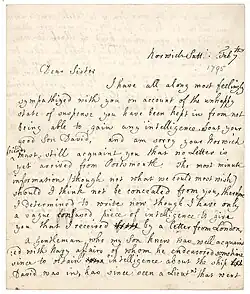 Norwich Satt. Feb 7th
1795
Dear Sister
I have all along most feelingly
sympathized with you on account of the unhappy
state of suspense you have been kept in from not
being able to gain any intelligence about your
good Son David, and am sorry your Norwich
must, still acquaint you that no Letter is
yet arrived from Portsmouth. The most minute
information (though not what we could most wish)
should I think not be concealed from you, therefore
I Determined to write now though I have only
a vague confused piece of intelligence to give
you that I received by a letter from London,
a Gentleman who my Son knew was well acquain-
ted with Navy affairs of whom he endeavored sometime
since to obtain intelligence about the ship
David was in, has since seen a Lieut. that went